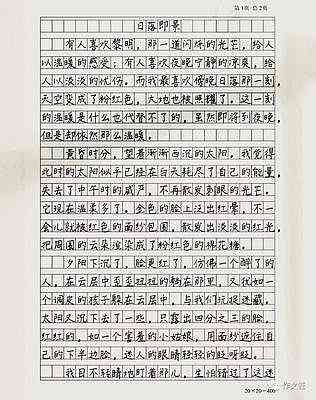 第1页·总2页
日落即景
有人喜欢黎明，那一道闪烁的光芒，给人
以温暖的感受；有人喜欢夜晚宁静的凉爽，给人
以人以淡淡的忧伤。而我最喜欢傍晚日落那一刻，
天空变成了粉红色，大地也被照耀了。这一刻
的温暖是什么也代替不了的。虽然即将到夜晚
但是却依然那么温暖。
黄昏时分，望着渐渐西沉的太阳，我觉得
此时的太阳似乎已经在白天耗尽了自己的能量，
失去了中午时的威严，不再散发刺眼的光芒。
它现在温柔多了，金色的脸上泛出红晕，不一
会儿就被红色的面纱包围，散发出淡淡的红光，
把周围的云朵渲染成了粉红色的棉花糖。
夕阳下沉了，脸更红了，仿佛一个醉了的
人，在云层中歪歪扭扭的躺在那里，又犹如一
个调皮的孩子躲在云层中，与我们玩捉迷藏。
太阳又沉下去了一些，只露出四分之三的脸，
红红的，如一个害羞的小姑娘，用面纱遮住自
己的下半边脸，迷人的眼睛轻轻的眨呀眨。
我目不转睛地盯着那儿，生怕错过了这迷
20×20=400